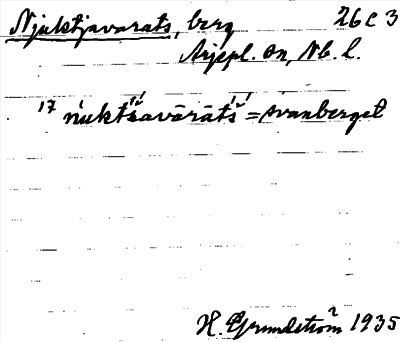 Njuktjavarats, berg 26 C 3
Arjepl. sn, Nb. l.
17 ńuktśavāràtś = svanberget
H. Grundström 1935